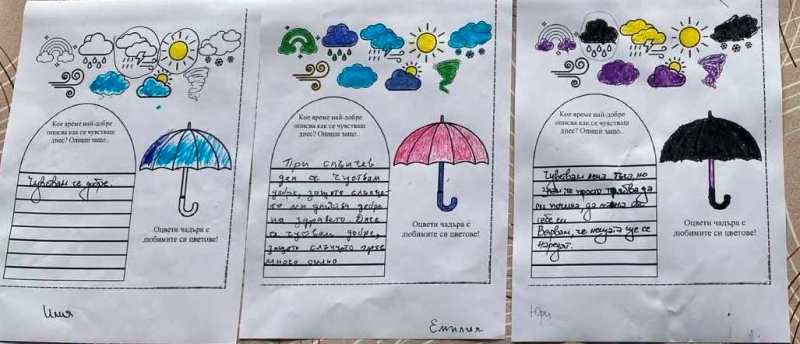 Кое време най-добре
описва как се чувстваш
днес? Опиши защо..
Чувствам се добре.
Оцвети чадъра с
любимите си цветове!
Илия
Кое време най-добре
описва как се чувстваш
днес? Опиши защо..
При слънчев
ден се чувствам
добре, защото слънце-
то ми действа добре
на здравето. Днес
се чувствам добре,
защото слънчото грее
много силно
Оцвети чадъра с
любимите си цветове!
Емилия
Кое време най-добре
описва как се чувстваш
днес? Опиши защо..
Чувствам лека тъга, но
знам, че просто трябва да
си почина, да
себе си
Вярвам, че нещата ще се
наредят.
Оцвети чадъра с
любимите си цветове!
Юри